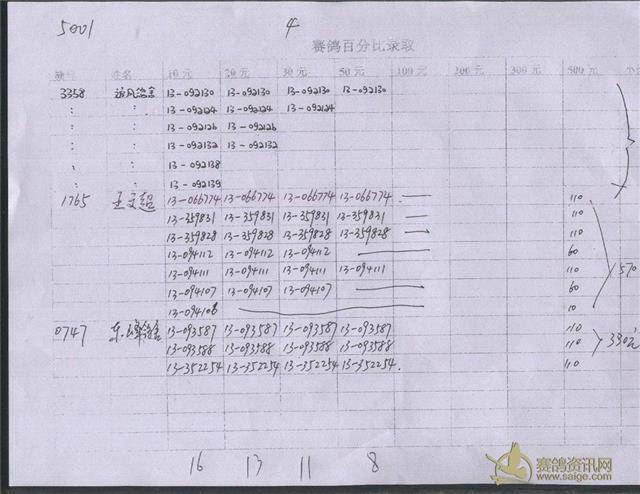 5001 4
赛鸽百分比录取
编号 姓名 10元 20元 30元 50元 100元 200元 300元 500元
3358 13-092130 13-092130 13-092130 13-092130
: : 13-092124 13-092124 13-092124
: : 13-092126 13-092126
: : 13-092132 13-092132
: : 13-092138
: : 13-092139
1765 王文超 13-066774 13-066774 13-066774 13-066774 110
13-359831 13-359831 13-359831 13-359831 110
13-359828 13-359828 13-359828 13-359828 110
13-094112 13-094112 13-094112 60
13-094111 13-094111 13-094111 13-094111 110 570
13-094107 13-094107 13-094107 60
13-094106 10
0747 13-093587 13-093587 13-093587 13-093587 110
13-093588 13-093588 13-093588 13-093588 110 330元
13-352254 13-352254 13-352254 13-352254 110
16 13 11 8
赛鸽资讯网
www.saige.com